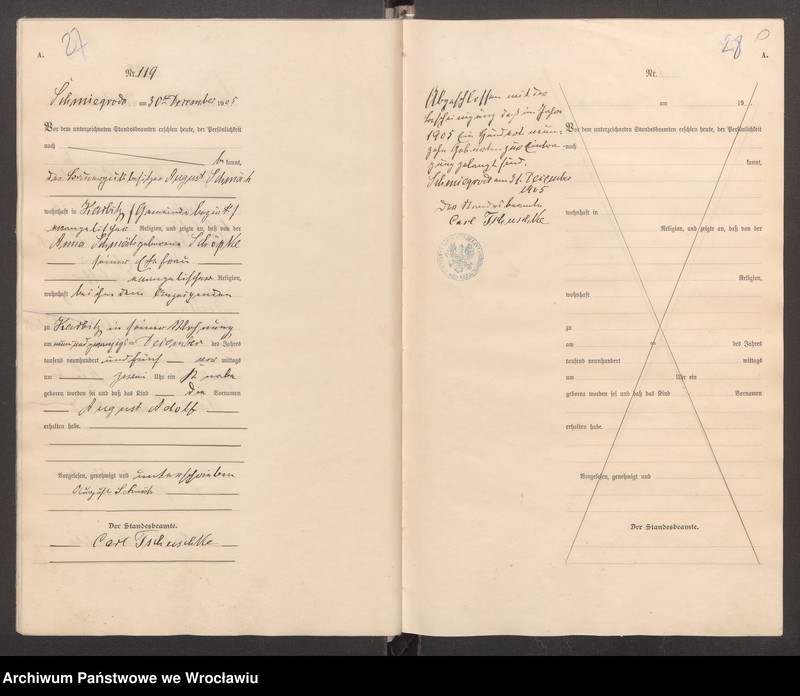 27
A.
Nr. 119
Schmiegrode am 30ten Dezember 1905
Vor dem unterzeichneten Standesbeamten erschien heute, der Persönlichkeit
nach
be kannt,
der Bauergutsbesitzer August
wohnhaft in Karbitz (Gemeinde Bezirk)
evangelischer Religion, und zeigte an, daß von der
Anna geborene Schöpke
seiner Ehefrau
evangelischer Religion,
wohnhaft bei ihm dem Anzeigenden
zu Karbitz in seiner Wohnung
am neun und zwanzigsten Dezember des Jahres
tausend neunhundert und fünf vor mittags
um Uhr ein Knabe
geboren worden sei und daß das Kind die Vornamen
August Adolf
erhalten habe.
Vorgelesen, genehmigt und unterschrieben
August
Der Standesbeamte.
Carl Tschuschke
28
A.
Abgeschlossen mit der
Bescheinigung daß im Jahre
1905 Ein Hundert neun-
zehn Geburten zur Eintra-
gung gelangt sind.
Schmiegrode am 31. Dezember
1905
Der Standesbeamte
Carl Tschuschke
Nr.
am 19
Vor dem unterzeichneten Standesbeamten erschien heute, der Persönlichkeit
nach
kannt,
wohnhaft in
Religion, und zeigte an, daß von der
Religion,
wohnhaft
zu
am des Jahres
tausend neunhundert mittags
um Uhr ein
geboren worden sei und daß das Kind Vornamen
erhalten habe.
Vorgelesen, genehmigt und
Der Standesbeamte.
Archiwum Państwowe we Wrocławiu